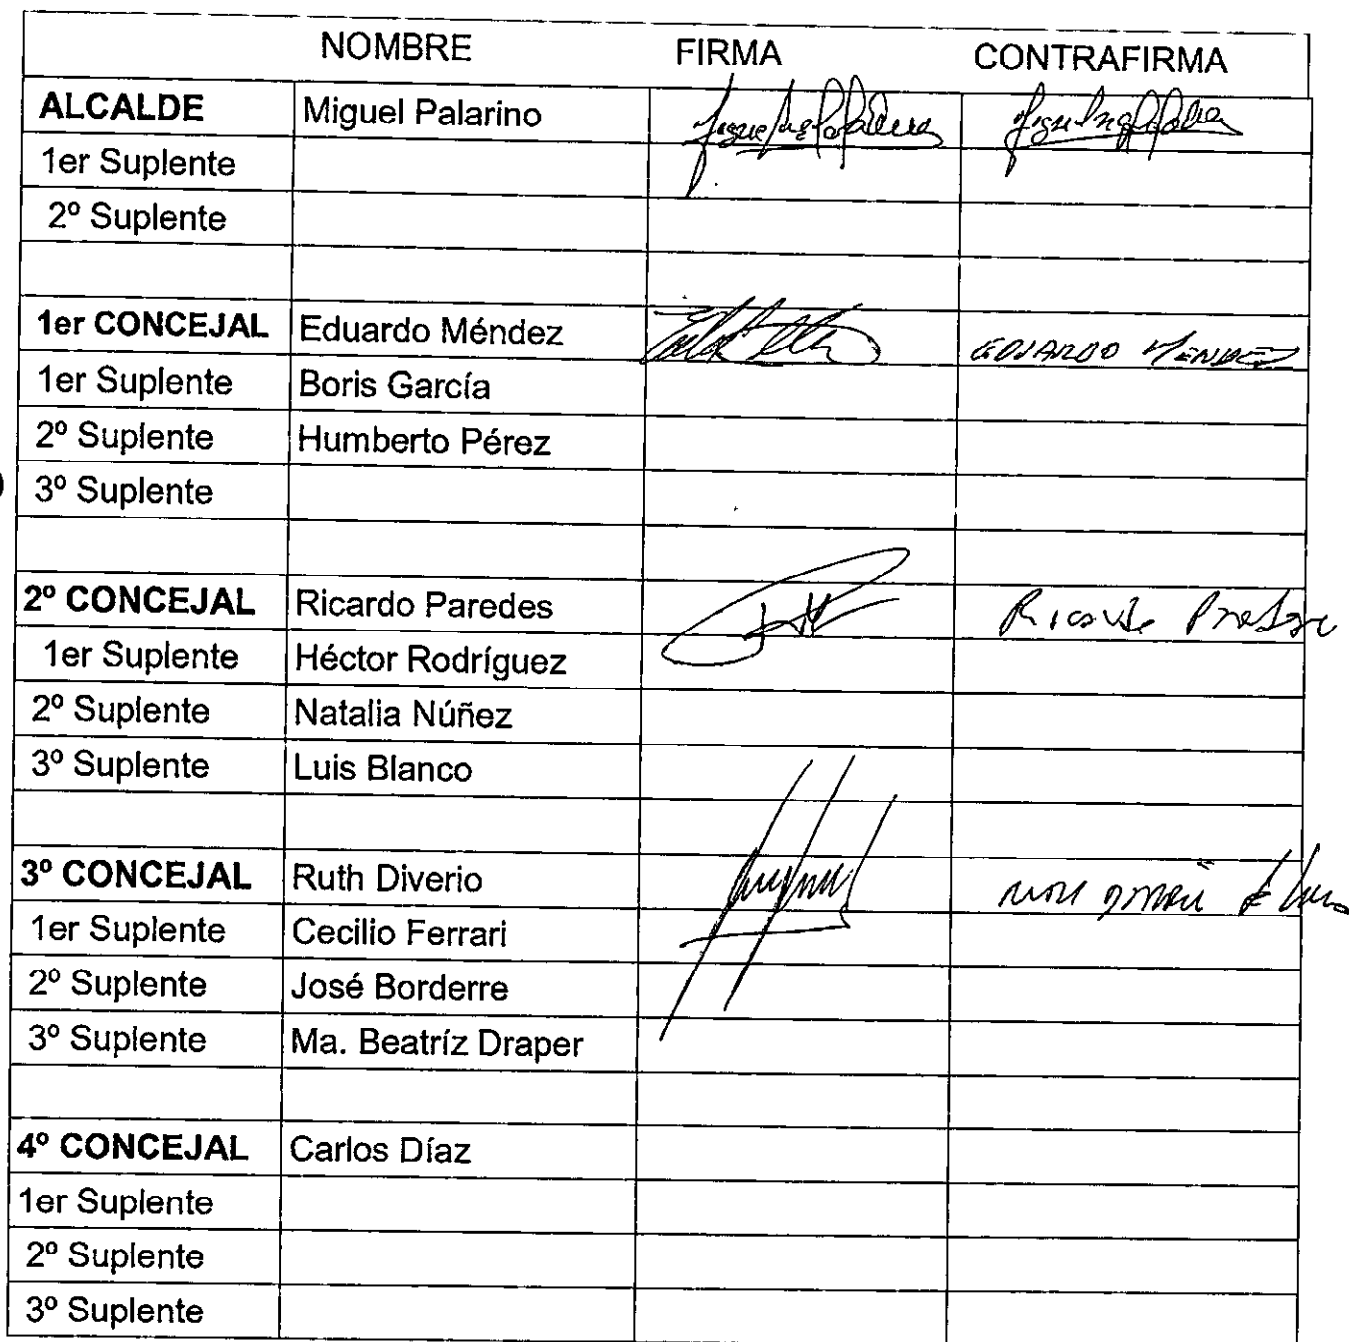 NOMBRE FIRMA CONTRAFIRMA
ALCALDE Miguel Palarino
1er Suplente
2º Suplente
1er CONCEJAL Eduardo Méndez EDUARDO MENDEZ
1er Suplente Boris García
2º Suplente Humberto Pérez
3º Suplente
2º CONCEJAL Ricardo Paredes Ricardo
1er Suplente Héctor Rodríguez
2º Suplente Natalia Núñez
3º Suplente Luis Blanco
3º CONCEJAL Ruth Diverio
1er Suplente Cecilio Ferrari
2º Suplente José Borderre
3º Suplente Ma. Beatríz Draper
4º CONCEJAL Carlos Díaz
1er Suplente
2º Suplente
3º Suplente